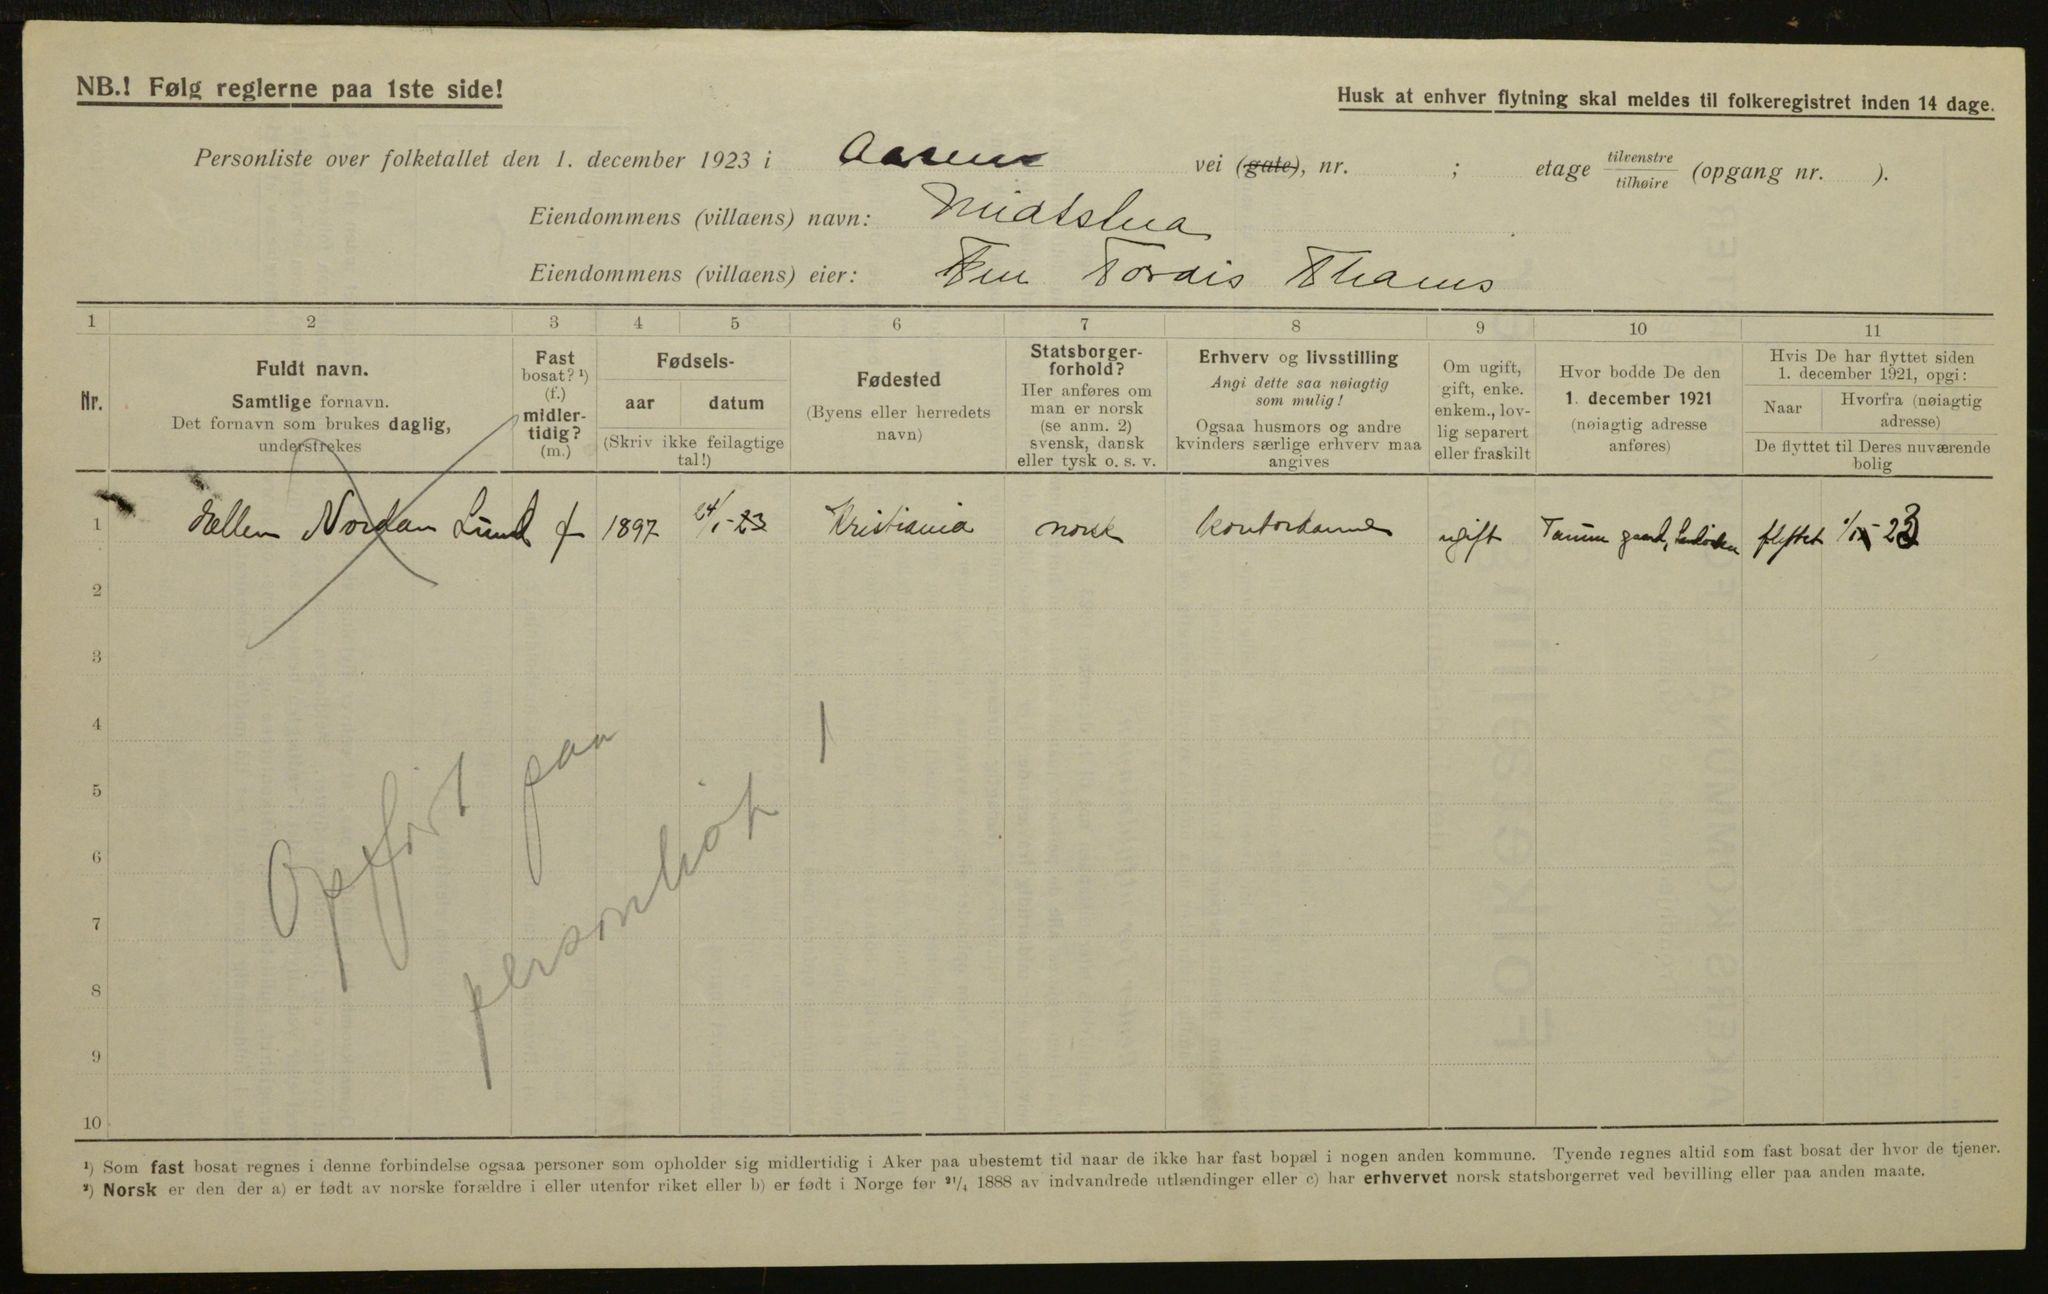 NB.! Følg reglerne paa 1ste side!
Husk at enhver flytning skal meldes til folkeregistret inden 14 dage.
Personliste over folketallet den 1. december 1923 i Aasens vei (gate), nr. ; etage tilvenstre/tilhøire (opgang nr. ).
Eiendommens (villaens) navn: Midtstua
Eiendommens (villaens) eier: Fru Tordis Thams
1 2 3 4 5 6 7 8 9 10 11
Nr.
Fuldt navn.
Samtlige fornavn.
Det fornavn som brukes daglig,
understrekes
Fast
bosat? ¹)
(f.)
midler-
tidig?
(m.)
Fødsels-
aar datum
(Skriv ikke feilagtige
tal!)
Fødested
(Byens eller herredets
navn)
Statsborger-
forhold?
Her anføres om
man er norsk
(se anm. 2)
svensk, dansk
eller tysk o. s. v.
Erhverv og livsstilling
Angi dette saa nøiagtig
som mulig!
Ogsaa husmors og andre
kvinders særlige erhverv maa
angives
Om ugift,
gift, enke.
enkem., lov-
lig separert
eller fraskilt
Hvor bodde De den
1. december 1921
(nøiagtig adresse
anføres)
Hvis De har flyttet siden
1. december 1921, opgi:
Naar
Hvorfra (nøiagtig
adresse)
De flyttet til Deres nuværende
bolig
1 Ellen Nordan Lund f 1897 24/1-23 Kristiania norsk kontordame ugift Tanum gaard, flyttet 23
2
3
4
5
6
7
8
9
10
Opført paa
personliste 1
¹) Som fast bosat regnes i denne forbindelse ogsaa personer som opholder sig midlertidig i Aker paa ubestemt tid naar de ikke har fast bopæl i nogen anden kommune. Tyende regnes altid som fast bosat der hvor de tjener.
²) Norsk er den der a) er født av norske forældre i eller utenfor riket eller b) er født i Norge før ²¹/₄ 1888 av indvandrede utlændinger eller c) har erhvervet norsk statsborgerret ved bevilling eller paa anden maate.